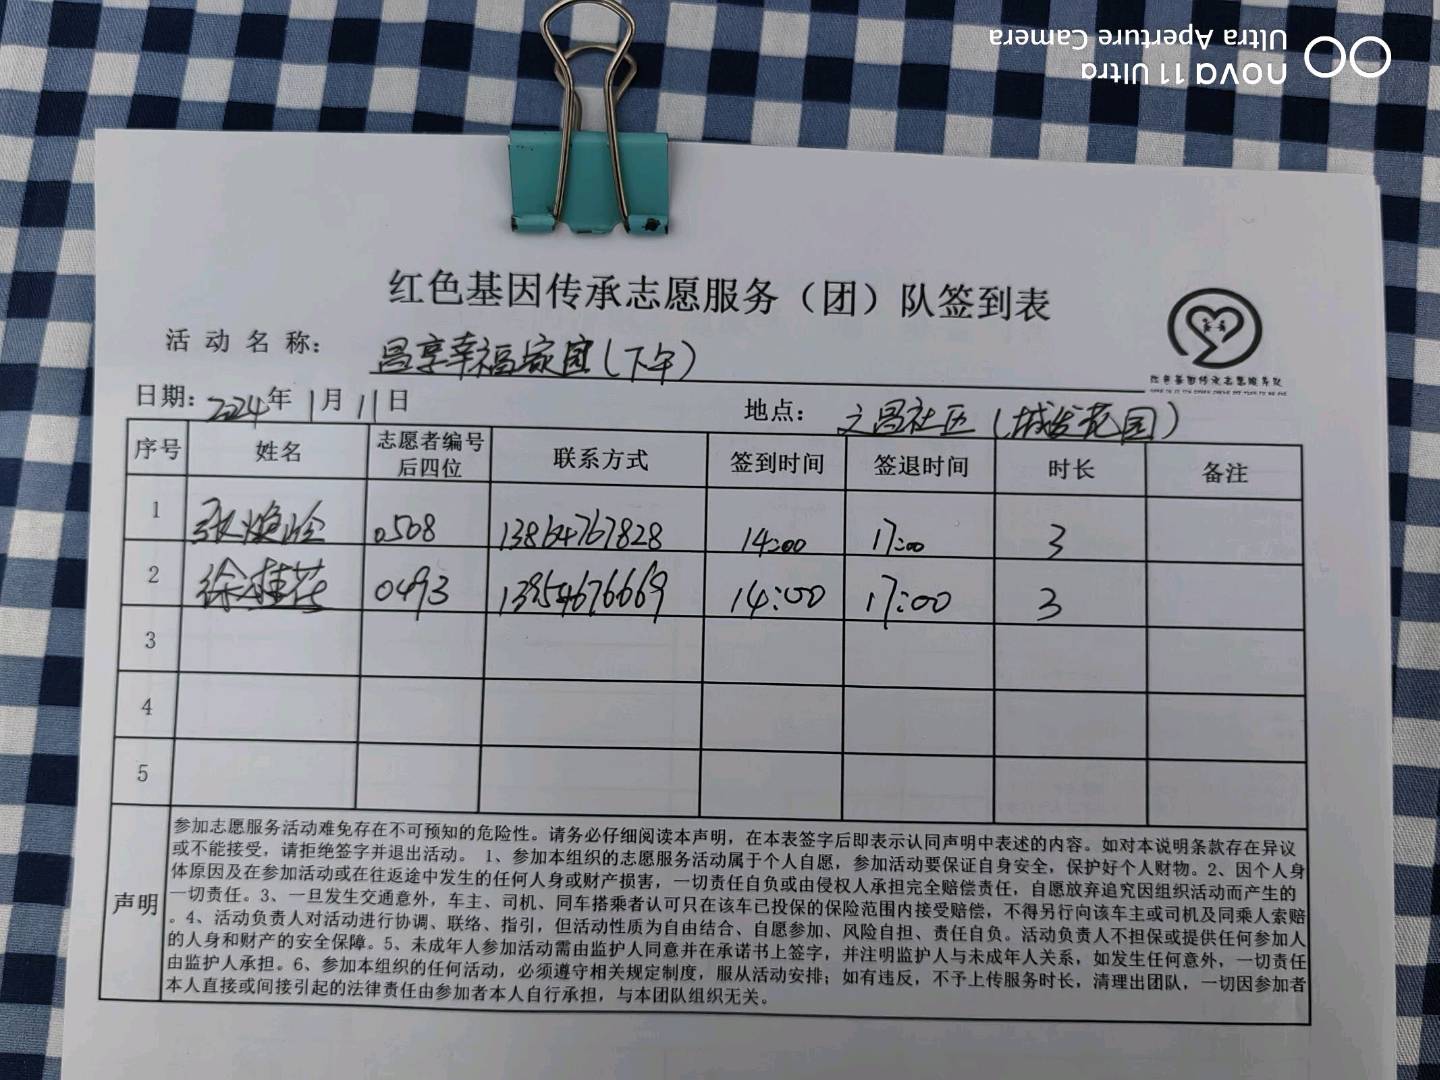 nova 11 Ultra
Ultra Aperture Camera
红色基因传承志愿服务（团）队签到表
活动名称： 昌享幸福家园（下午）
日期：2024年1月11日 地点： 文昌社区（城发花园）
红色基因传承志愿服务队
序号 姓名 志愿者编号后四位 联系方式 签到时间 签退时间 时长 备注
1 张焕玲 0508 13864767828 14:00 17:00 3
2 徐桂花 0493 13854676669 14:00 17:00 3
3
4
5
声明
参加志愿服务活动难免存在不可预知的危险性。请务必仔细阅读本声明，在本表签字后即表示认同声明中表述的内容。如对本说明条款存在异议
或不能接受，请拒绝签字并退出活动。 1、参加本组织的志愿服务活动属于个人自愿，参加活动要保证自身安全，保护好个人财物。2、因个人身
体原因及在参加活动或在往返途中发生的任何人身或财产损害，一切责任自负或由侵权人承担完全赔偿责任，自愿放弃追究因组织活动而产生的
一切责任。3、一旦发生交通意外，车主、司机、同车搭乘者认可只在该车已投保的保险范围内接受赔偿，不得另行向该车主或司机及同乘人索赔
。4、活动负责人对活动进行协调、联络、指引，但活动性质为自由结合、自愿参加、风险自担、责任自负。活动负责人不担保或提供任何参加人
的人身和财产的安全保障。5、未成年人参加活动需由监护人同意并在承诺书上签字，并注明监护人与未成年人关系，如发生任何意外，一切责任
由监护人承担。6、参加本组织的任何活动，必须遵守相关规定制度，服从活动安排；如有违反，不予上传服务时长，清理出团队，一切因参加者
本人直接或间接引起的法律责任由参加者本人自行承担，与本团队组织无关。